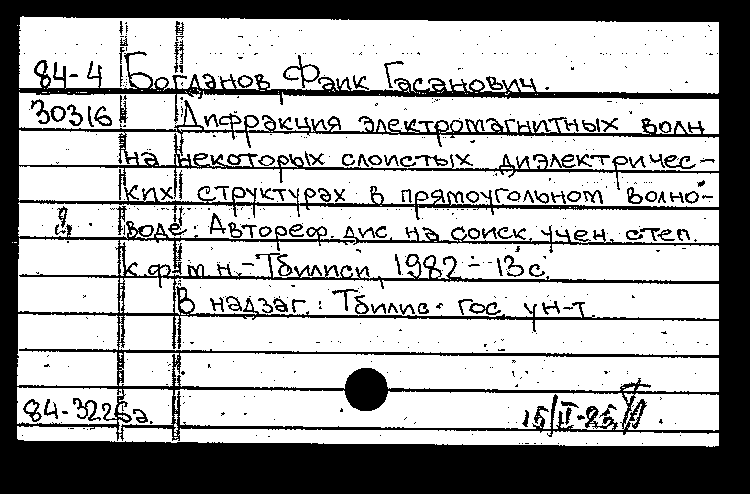 84-4 Богданов, Фаик Гасанович.
30316 Дифракция электромагнитных волн
на некоторых слоистых диэлектричес-
ких структурах в прямоугольном волно-
воде: Автореф. дис. на соиск. учен. степ.
к.ф-м.н.-Тбилиси, 1982 - 13с.
В надзаг.: Тбилис. гос. ун-т.
84-3225а
15/II-85